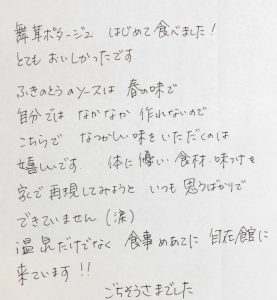 舞茸ポタージュ はじめて食べました!
とても おいしかったです
ふきのとうのソースは 春の味で
自分では なかなか 作れないので
こちらで なつかしい味をいただくのは
嬉しいです 体に優しい食材・味つけを
家で再現してみようと いつも思うばかりで
できていません(涙)
温泉だけでなく 食事めあてに 自在館に
来ています!!
ごちそうさまでした